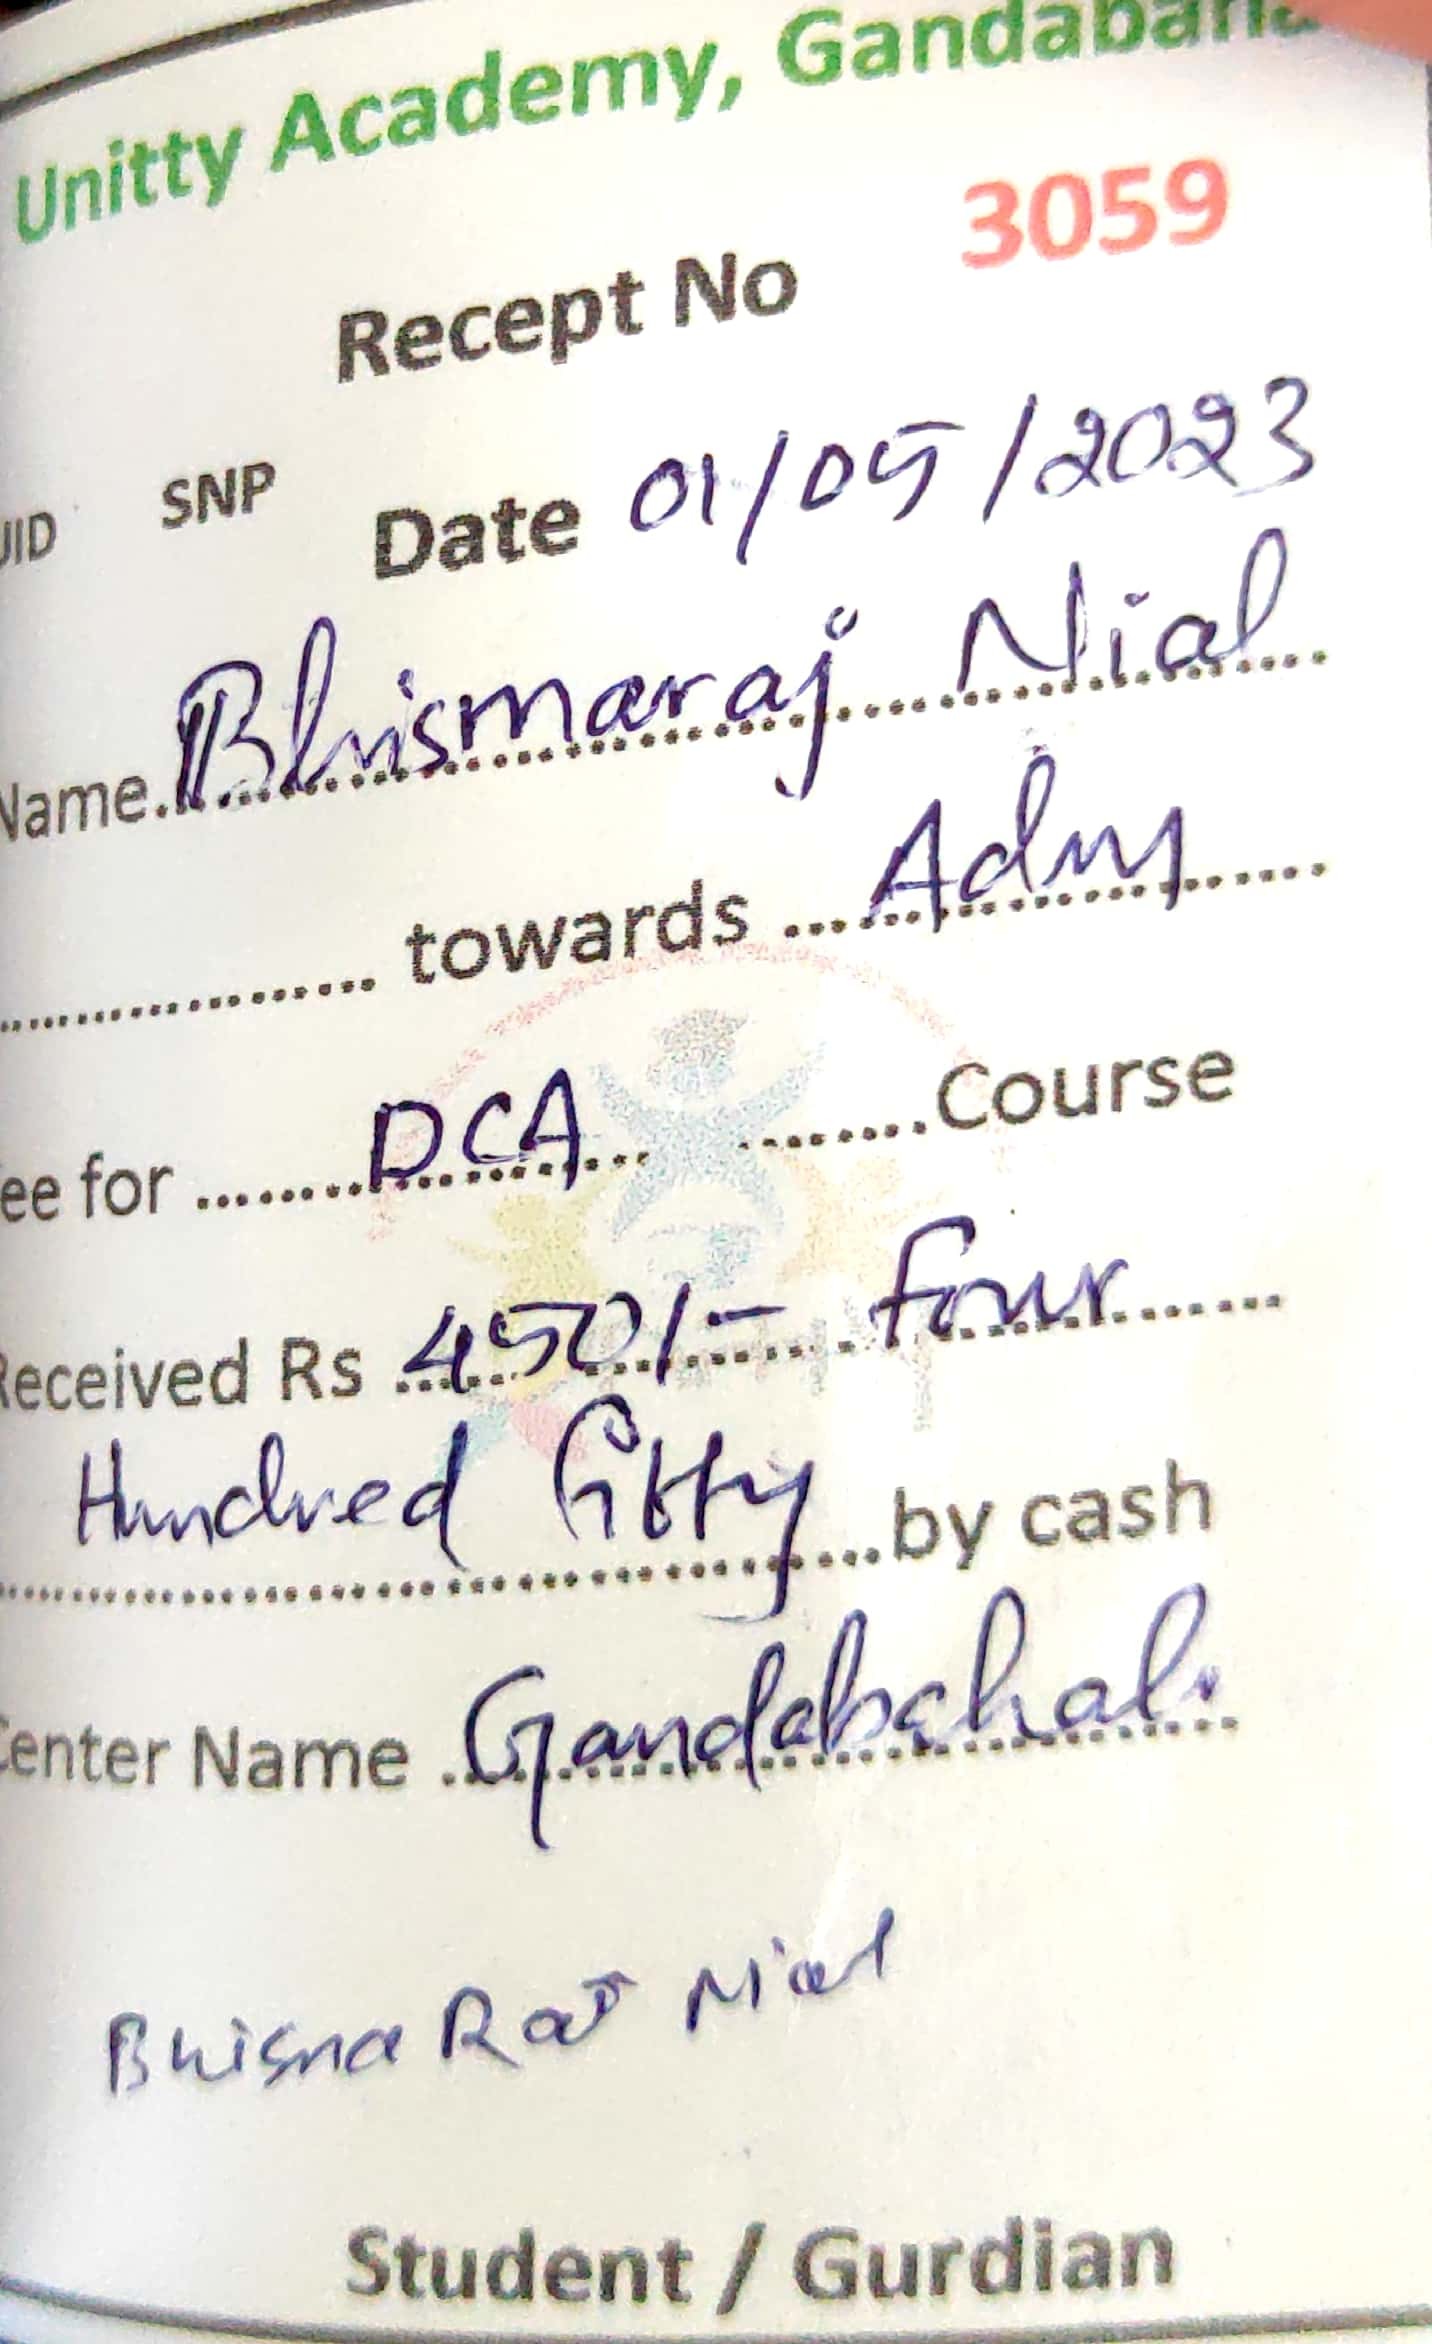 Unitty Academy, Gandabaha
Recept No 3059
UID SNP Date 01/05/2023
Name Bhismaraj Nial
towards Adm
ee for DCA Course
Received Rs 450/- four
Hundred fitty by cash
Center Name Gandabahal.
Bhisma Raj Nial
Student / Gurdian